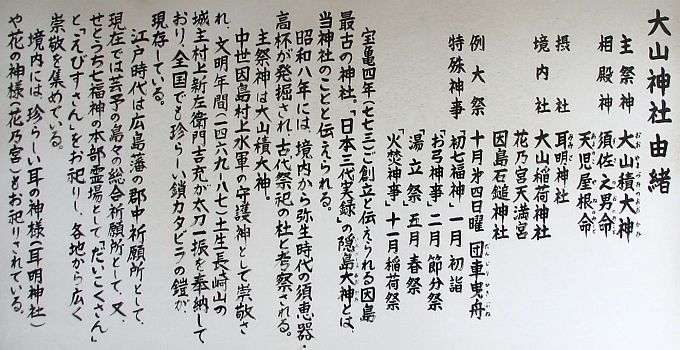 大山神社由緒
主祭神 大山積大神
おおやまづみのおおかみ
相殿神 須佐之男命
すさのおのみこと
天児屋根命
あめのこやねのみこと
摂社 耳明神社
境内社 大山稲荷神社
花乃宮天満宮
因島石鎚神社
例大祭 十月第四日曜 団車曳舟
だんじりひきぶね
特殊神事 「初七福神」一月 初詣
「お弓神事」二月 節分祭
「湯立祭」四月 春祭
「火焚神事」十一月 稲荷祭
宝亀四年(七七三)ご創立と伝えられる因島
最古の神社。「日本三代実録」の隠島大神とは、
当神社のことと伝えられる。
昭和八年には、境内から弥生時代の須恵器・
高杯が発掘され、古代祭祀の杜と考察される。
主祭神は大山積大神。
中世因島村上水軍の守護神として崇敬さ
れ、文明年間(一四六九-八七)土生長崎山の
城主村上新左衛門吉充が太刀一振を奉納して
おり、全国でも珍らしい鎖カタビラの鎧が、
現存している。
江戸時代は広島藩の郡中祈願所として、
現在では芸予の島々の総合祈願所として、又、
せとうち七福神の本部霊場として、「だいこくさん」
と「えびすさん」をお祀りし、各地から広く
崇敬を集めている。
境内には、珍らしい耳の神様(耳明神社)
や花の神様(花乃宮)もお祀りされている。